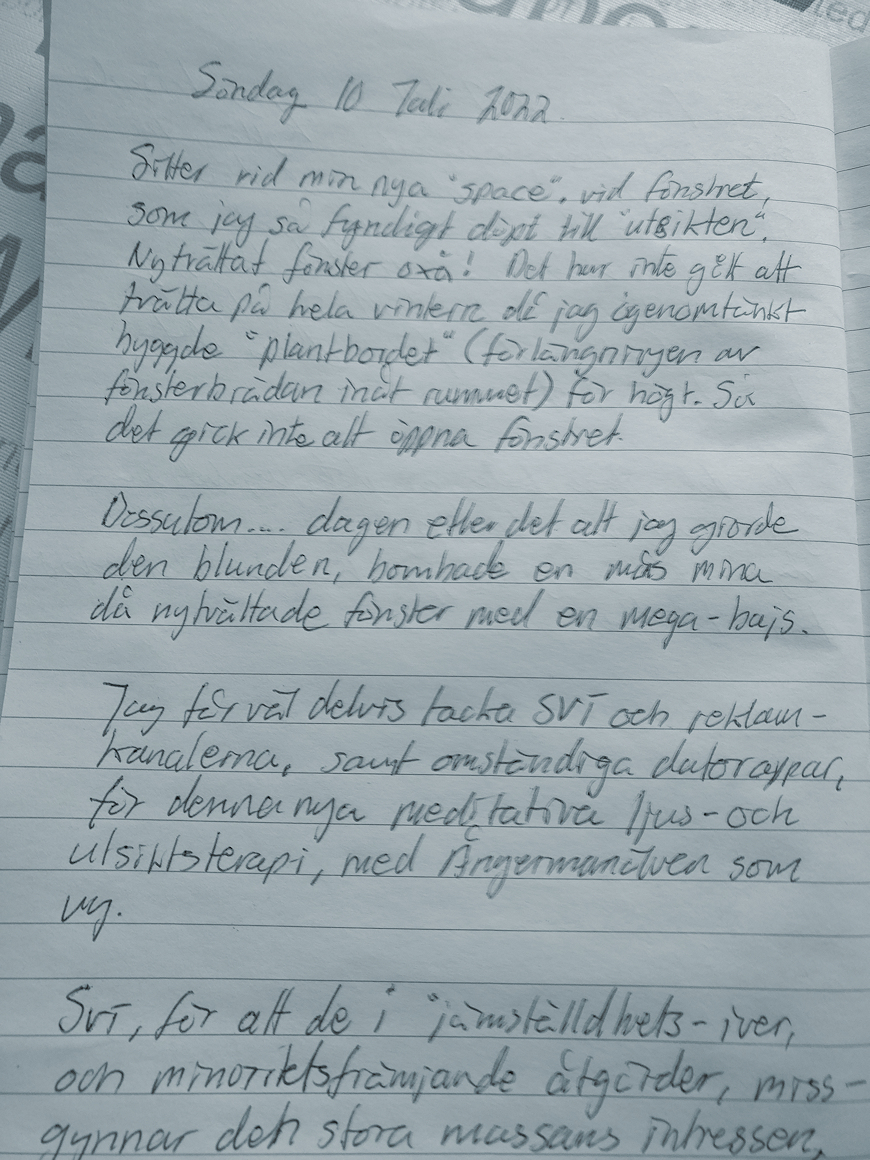 Söndag 10 Juli 2022
Sitter vid min nya "space", vid fönstret,
som jag så fyndigt döpt till "utsikten".
Nytvättat fönster oxå! Det har inte gått att
tvätta på hela vintern då jag ogenomtänkt
byggde "plantbordet" (förlängningen av
fönsterbrädan inåt rummet) för högt. Så
det gick inte att öppna fönstret.
Dessutom.... dagen efter det att jag gjorde
den blunden, bombade en mås mina
då nytvättade fönster med en mega-bajs.
Jag får väl delvis tacka SVT och reklam-
kanalerna, samt omständiga datorappar,
för denna nya meditativa ljus-och
utsiktsterapi, med Ångermanälven som
vy.
SVT, för att de i "jämställdhets-iver,
och minoritetsfrämjande åtgärder, miss-
gynnar den stora massans intressen,